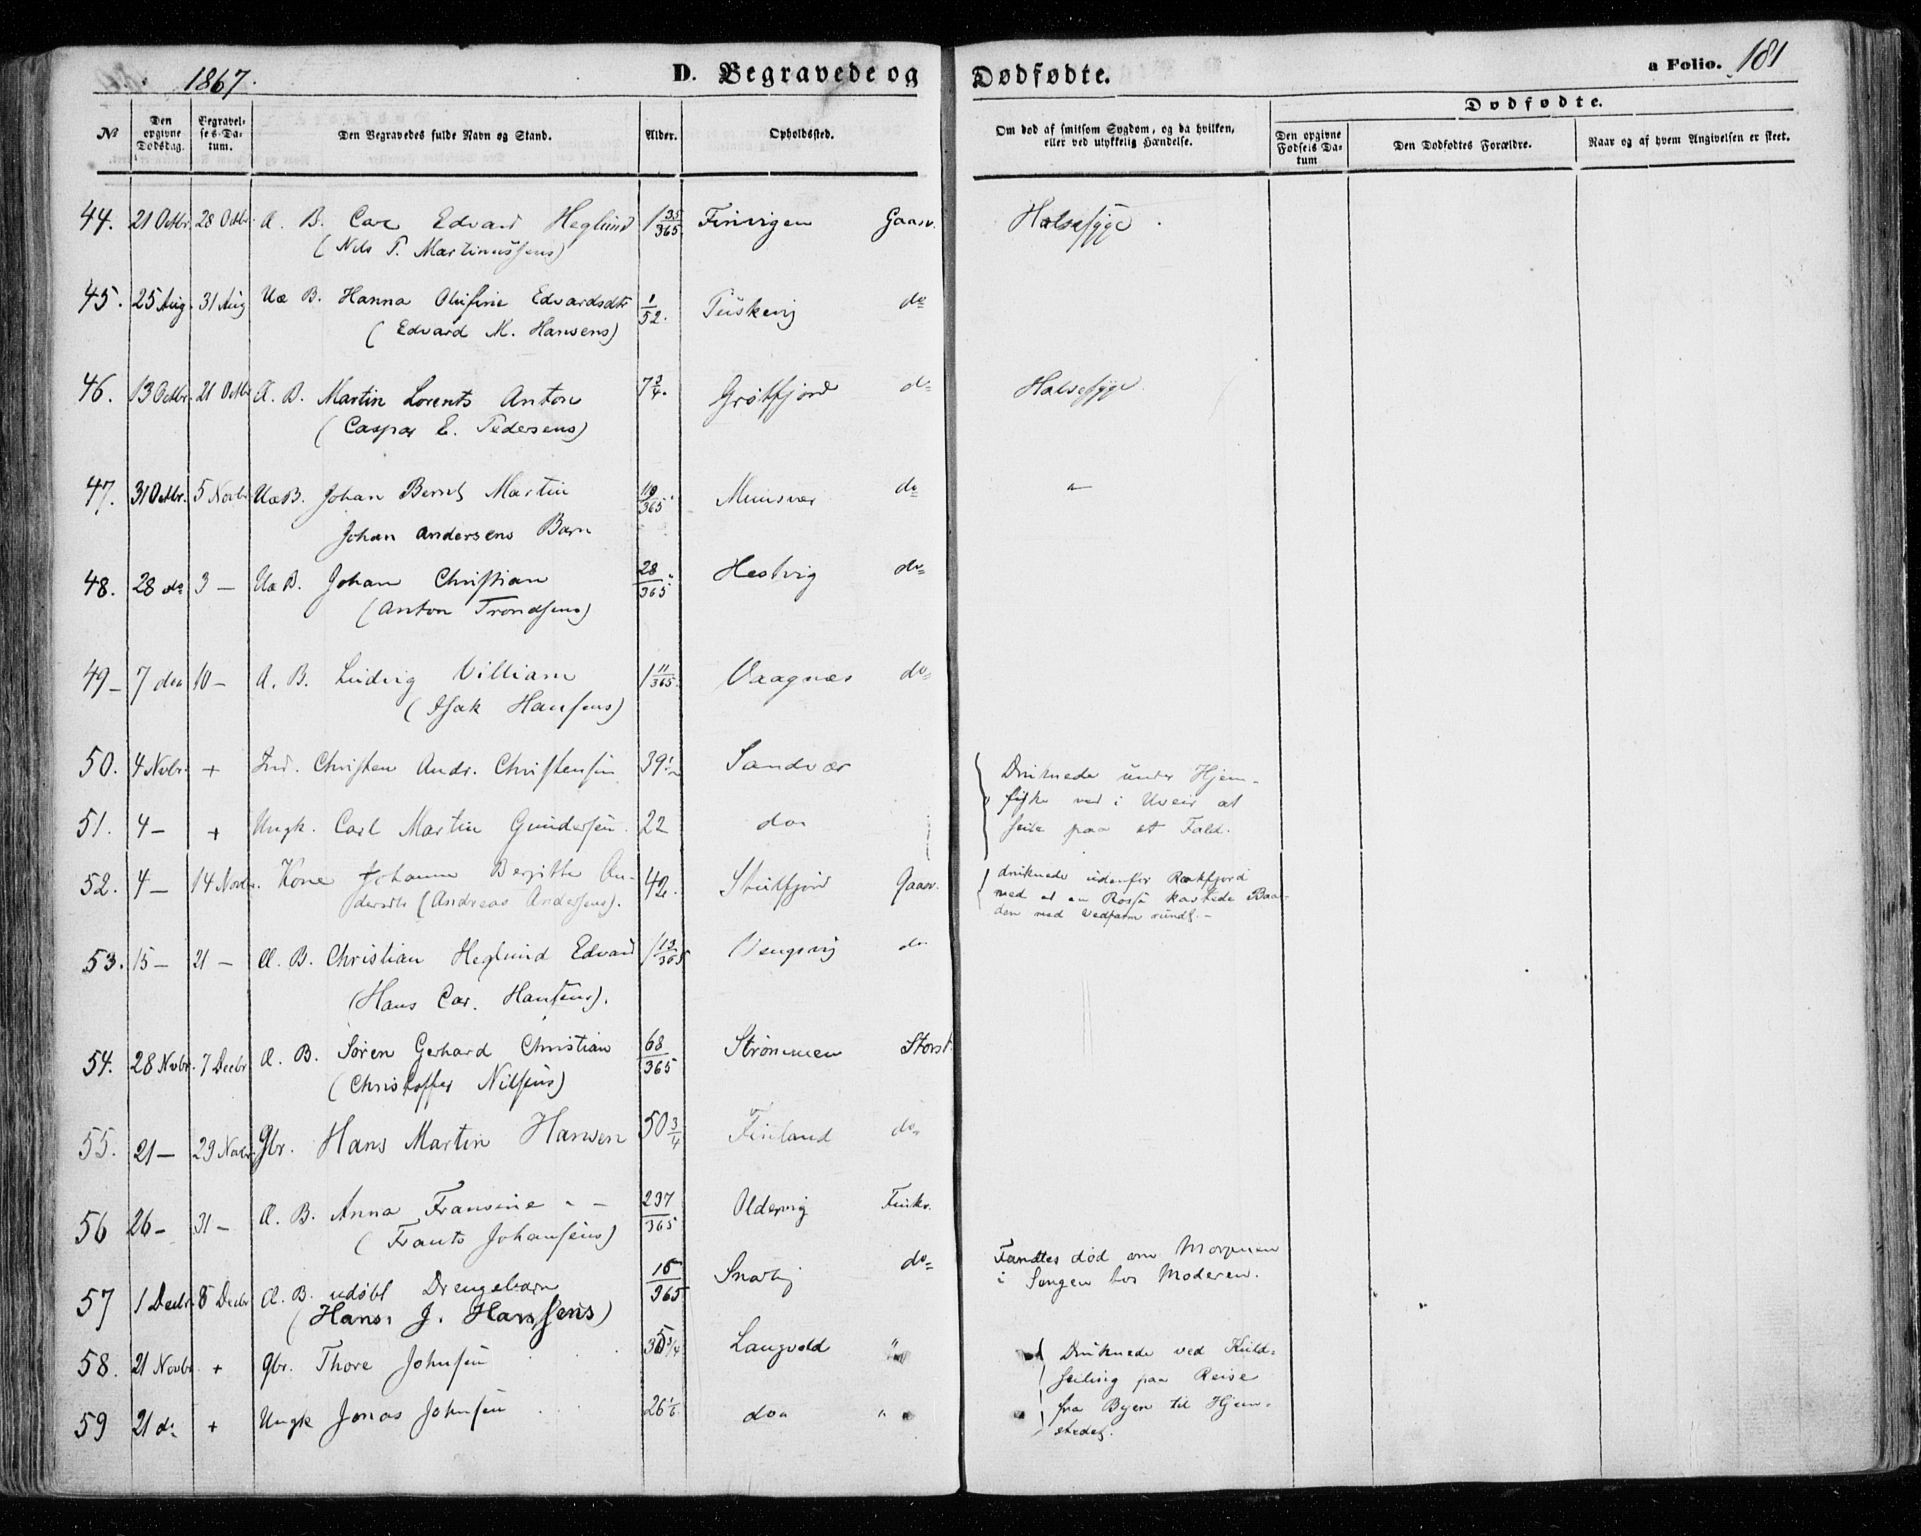 1867.
D. Begravede og Dødfødte.
a Folio. 181
No
Den opgivne Dødsdag.
Begravelses-Datum.
Den Begravedes fulde Navn og Stand.
Alder.
Opholdssted.
Om død af smitsom Sygdom, og da hvilken, eller ved ulykkelig Hændelse.
Dødfødte.
Den opgivne Fødsels Datum
Den Dødfødtes Forældre.
Naar og af hvem Angivelsen er skeet.
44. 21 Octbr. 28 Octbr. Æ. B. Carl Edvard Heglund 1 35/365. Finvigen Gaasv. Halsesyge
(Nils T. Martinussens)
45. 25 Aug. 31 Aug Uæ B. Hanna Olufine Edvardsdtr 1/52. Tuskevig do
(Edvard M. Hansens)
46. 13 Octbr. 21 Octbr Æ. B. Martin Lorents Anton 7 3/4. Grøtfjord do Halsesyge
(Caspar E. Pedersens)
47. 31 Octbr. 5 Novbr Uæ B. Johan Bernt Martin Musvær do "
Johan Andersens Barn
48. 28 do 3 — Uæ B. Johan Christian 28/365 Hestvig do
(Anton Trondsens)
49 — 7 do 10 — Æ. B. Ludvig Villiam 1 11/365. Vaagnæs do
(Isak Hansens)
50. 4 Novbr. + Ind. Christen Andr. Christensen 39 1/2 Sandvær Druknede under Hjem-
fiske ved i Uveir at
seile paa et Fald.
51. 4 — + Ungk. Carl Martin Gundersen 22 do
52. 4 — 14 Novbr. Kone Johanna Bergitte An- 42. Gaasv. druknede udenfor Rækfjord
dersdtr (Andreas Andersens). ved at en Rosse kastede Baa-
den med Vedfarm rundt. —
53. 15 — 21 — Æ. B. Christian Heglund Edvard 1 13/365 Vengsvig do
(Hans Car. Hansens).
54. 28 Novbr. 7 Decbr. Æ. B. Søren Gerhard Christian 68/365 Strømmen Storst.
(Christoffer Nilsens)
55. 21 — 29 Novbr. gbr. Hans Martin Hansen 50 3/4 Finland do
56 26 — 31 — Æ. B. Anna Fransine 237/365 Oldervig Finkr.
(Frants Johansens)
57 1 Decbr. 8 Decbr Æ. B. udøbt Drengebarn 16/365 Snarby do Fandtes død om Morgenen
i Sengen hos Moderen.
(Hans J. Hanssens)
58. 21 Novbr + gbr. Thore Johnsen 35 3/4 Langvold " Druknede ved Kuld-
seiling paa Reise
fra Byen til Hjem-
stedet.
59 21 do + Ungk Jonas Johnsen 26 1/6 do "